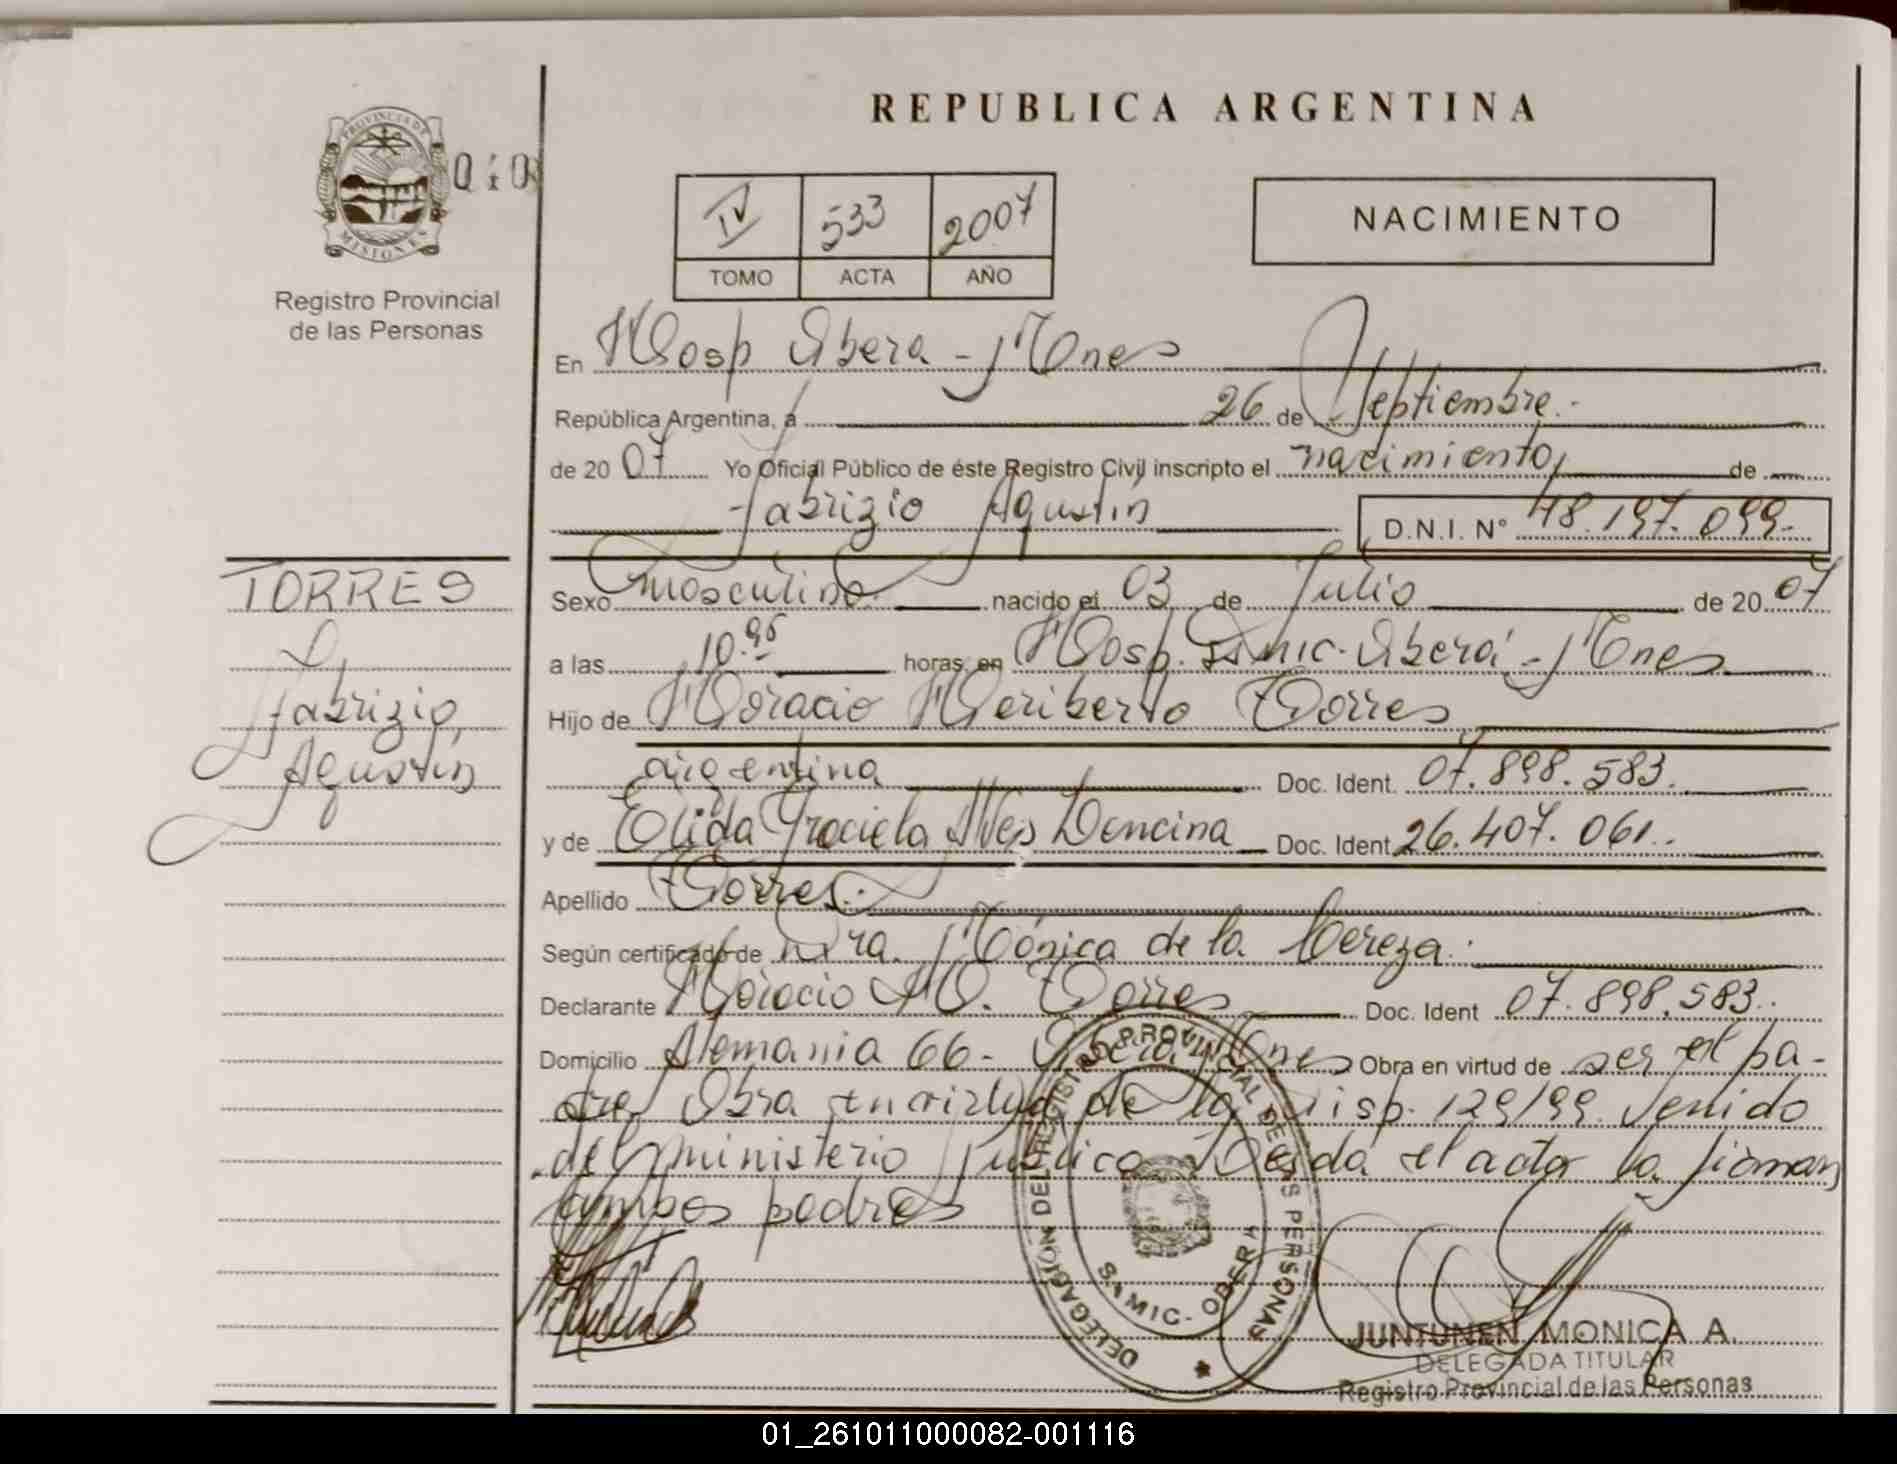 REPUBLICA ARGENTINA
PROVINCIA DE
MISIONES
Registro Provincial
de las Personas
IV 533 2007
TOMO ACTA AÑO
NACIMIENTO
En Hosp Oberá - Mnes
República Argentina, a 26 de Septiembre.-
de 20 07 Yo Oficial Público de éste Registro Civil inscripto el nacimiento, de
Fabrizio Agustín D.N.I. N° 48.197.099.-
TORRES
Fabrizio
Agustín
Sexo masculino. nacido el 03 de Julio de 20 07
a las 10. horas, en Hosp. Samic. Oberá - Mnes
Hijo de Horacio Heriberto Torres
argentina Doc. Ident. 07.898.583.
y de Elida Graciela Alves Doncina Doc. Ident. 26.407.061.
Apellido Torres.
Según certificado de Dra. Mónica de la Cereza.
Declarante Horacio H. Torres Doc. Ident 07.898.583.
Domicilio Alemania 66 - Oberá Mnes Obra en virtud de ser el pa-
dre Obra en virtud de la Disp. 129/99. Venido
del ministerio Público. Leida el acta la firman
ambos padres
DELEGACION DEL REGISTRO PROVINCIAL DE LAS PERSONAS
SAMIC - OBERA
JUNTUNEN MONICA A.
DELEGADA TITULAR
Registro Provincial de las Personas
01_261011000082-001116